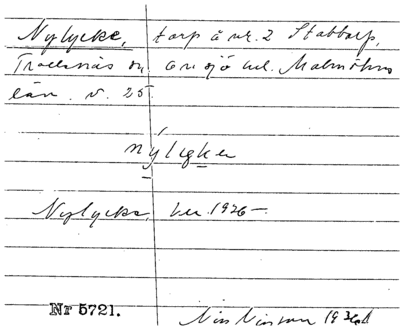 Nylycke, torp å nr. 2 Stabbarp,
Trollenäs sn Onsjö hd. Malmöhus
län. v. 25
nýligken
Nylycke, ker. 1926-
Nr 5721. Nils Nilsson